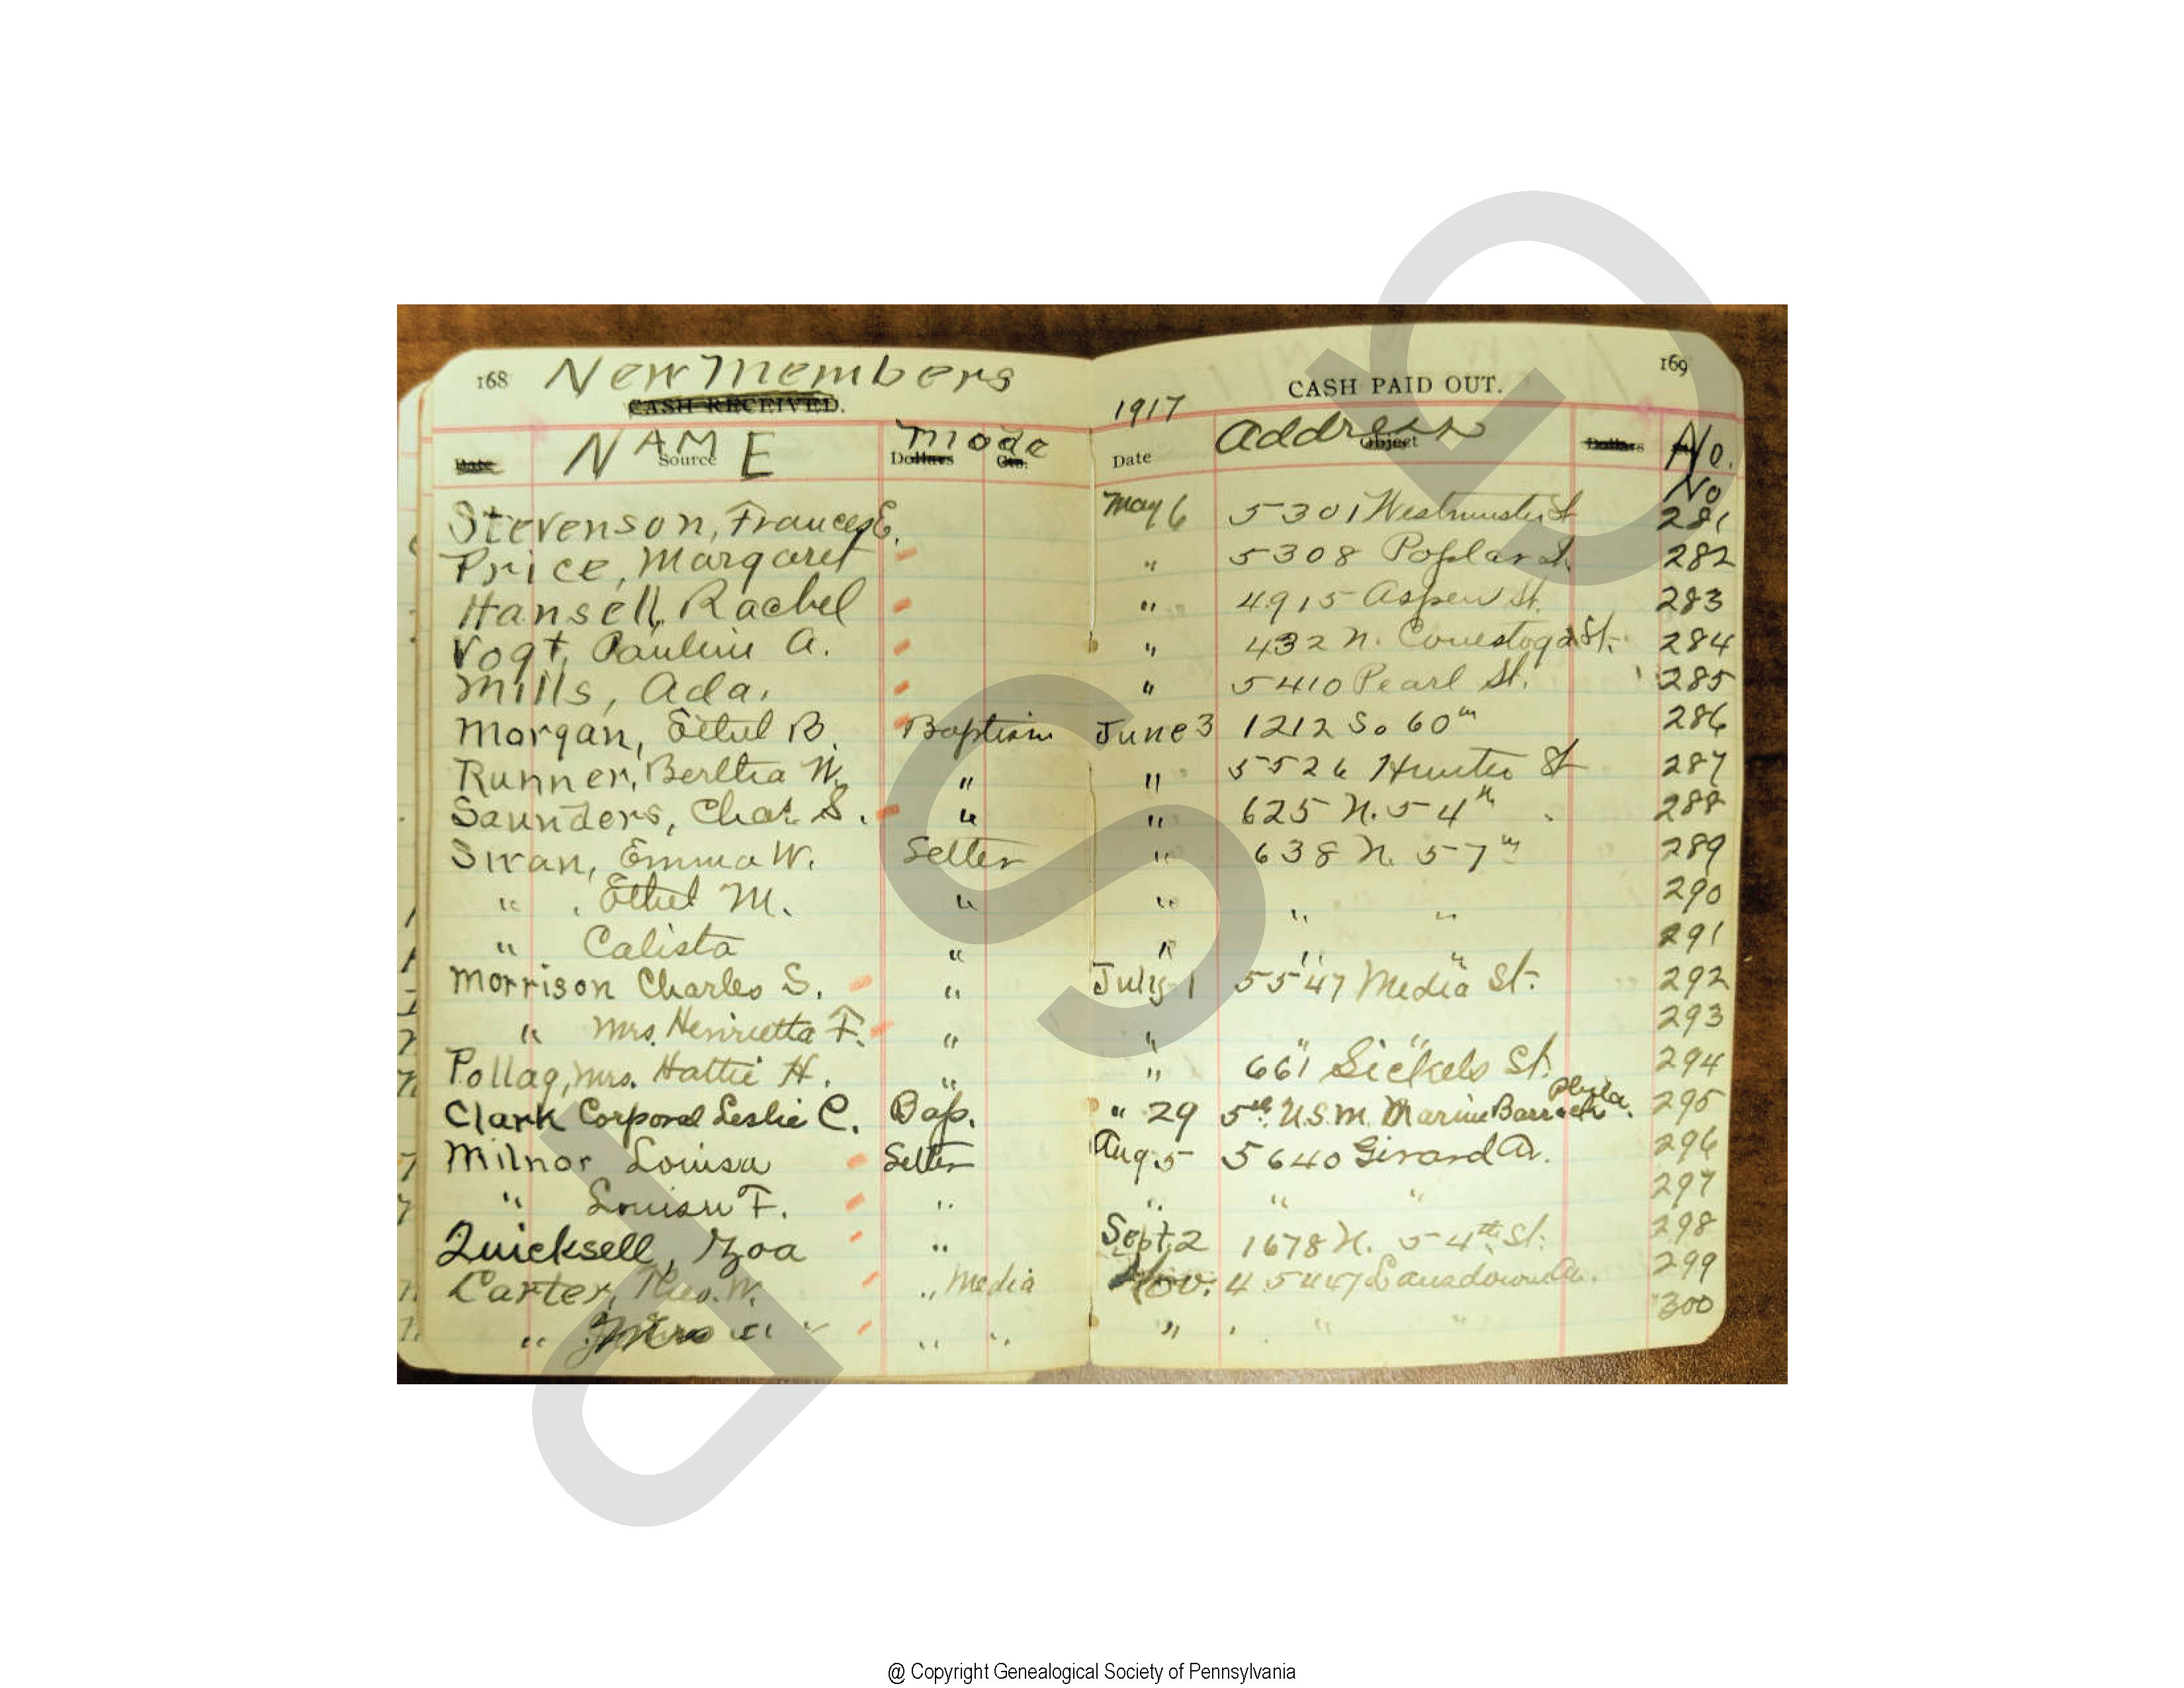 168 New Members
CASH RECEIVED.
Date NAME Source Mode Dollars Cts.
Stevenson, Frances E.
Price, Margaret
Hansell, Rachel
Vogt, Pauline A.
Mills, Ada.
Morgan, Ethel B. Baptism
Runner, Bertha W. "
Saunders, Chas. S. "
Swan, Emma W. Letter
" , Ethel M. "
" Calista "
Morrison Charles S. "
" Mrs. Henrietta F. "
Pollag, Mrs. Hattie H. "
Clark Corporal Leslie C. Bap.
Milnor Louisa Letter
" Louisa F. "
Quicksell, Zoa "
Carter, Theo. W. " Media
" Mrs " " " "
169
CASH PAID OUT.
1917
Date Address Object Dollars No.
No
May 6 5301 Westminster St 281
" 5308 Poplar St. 282
" 4915 Aspen St. 283
" 432 N. Conestoga St. 284
" 5410 Pearl St. 285
June 3 1212 So 60th 286
" 5526 Hunter St 287
" 625 N. 54th 288
" 638 N. 57th 289
" " " 290
" " " 291
July 1 5547 Media St. 292
" " " 293
" 661 Sickels St. 294
" 29 5th U.S.M. Marine Barrack Phila. 295
Aug 5 5640 Girard Av. 296
" " " 297
Sept. 2 1678 N. 54th St. 298
Nov. 4 5447 Lansdowne Av. 299
" " " " 300
GSP
@ Copyright Genealogical Society of Pennsylvania